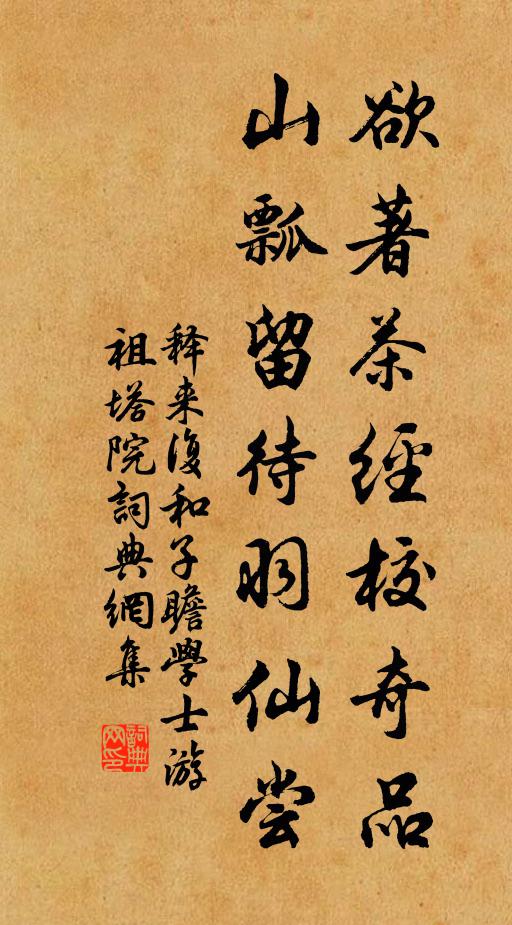 欲著茶經校奇品
山瓢留待羽仙尝
释来復和子瞻學士游
祖塔院詞典網集
詞典网印